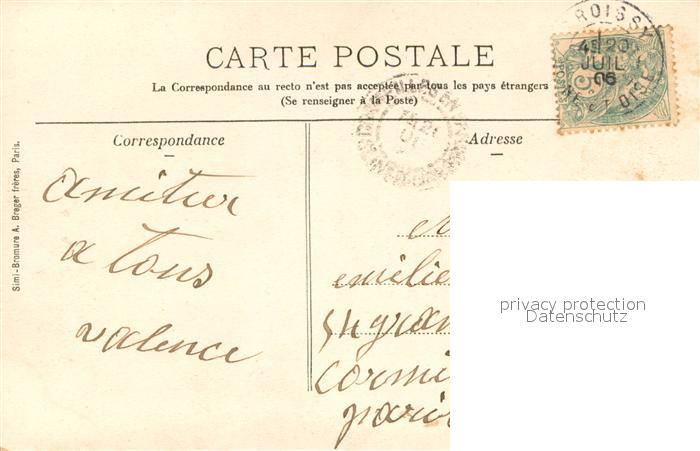 CARTE POSTALE
La Correspondance au recto n'est pas acceptée par tous les pays étrangers
(Se renseigner à la Poste)
Correspondance
amitier
a tous
valence
Adresse
emilie
54 gran
Cormei
paris
Simi-Bromure A. Breger frères, Paris.
ROISSY
4E 20
JUIL
06
ET OISE
privacy protection
Datenschutz